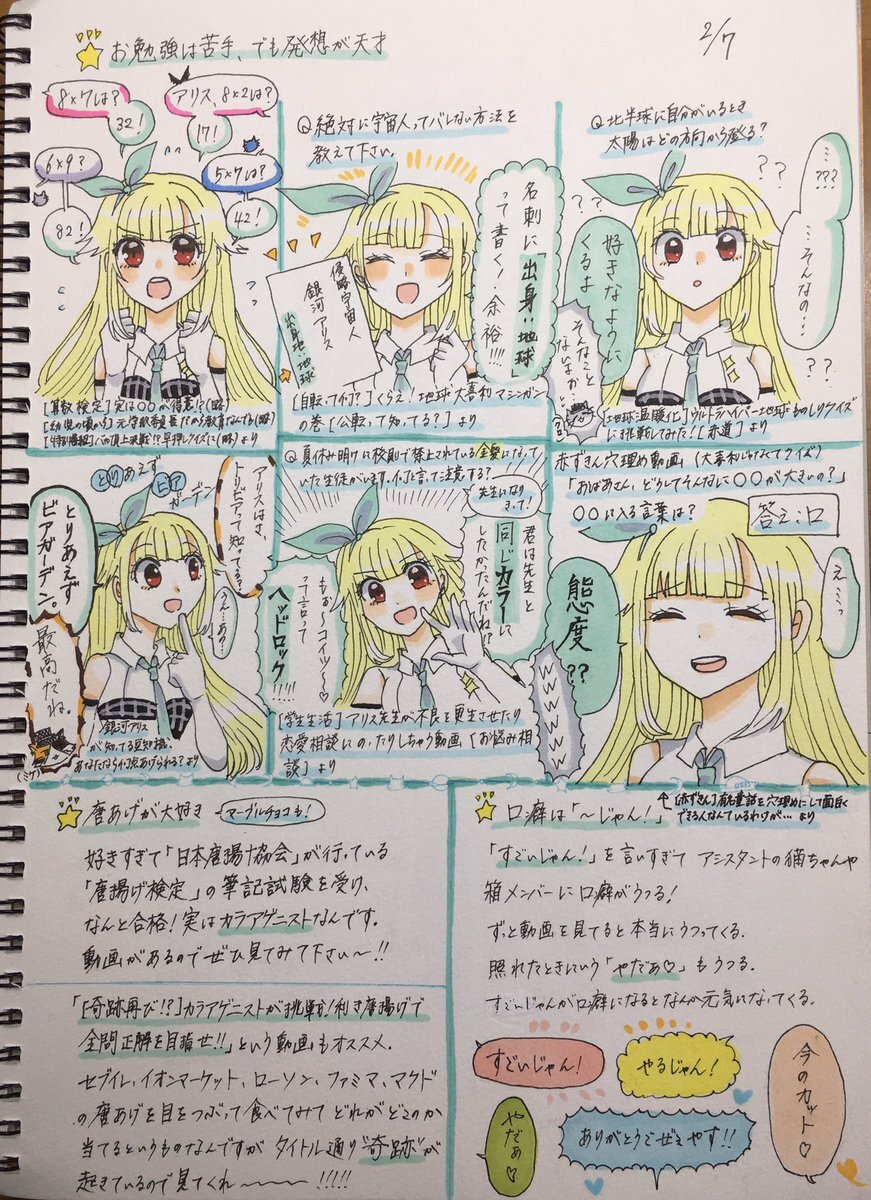 2/7
お勉強は苦手、でも発想が天才
8×7は?
32!
アリス、8×2は?
17!
6×9?
82!
5×7は?
42!
[算数検定]実は〇〇が得意!?(略)
Q 絶対に宇宙人ってバレない方法を
教えて下さい
侵略宇宙人
銀河アリス
出身地:地球
名刺に「出身:地球」
って書く!余裕!!!!
[自転って何?]くらえ!地球大喜利マシンガン
の巻[公転って知ってる?]より
Q 北半球に自分がいるとき
太陽はどの方向から登る?
…???
…そんなの…
好きなように
くるよ
そんなこと
ないよ
[地球温暖化]ウルトラハイパー地球ものしりクイズ
に挑戦してみた![赤道]より
とりあえず
ビア
ガーデン
アリスはさ、
トリビアって知ってる?
うん…あの…
とりあえず
ビアガーデン。
最高だね。
(ミケ)
銀河アリス
が知ってる豆知識、
あなたなら何点あげられる?より
Q 夏休み明けに校則で禁止されている金髪になって
いた生徒がいます。何と言って注意する?
先生になり
きって!
君は先生と
同じカラーに
したかたんだね!?
もぉ〜コイツ〜♡
って言って
ヘッドロック!!!!
WWWWWW
[学生生活]アリス先生が不良を更生させたり
恋愛相談にのったりしちゃう動画[お悩み相
談]より
赤ずきん穴埋め動画(大喜利じゃなくてクイズ)
「おばあさん、どうしてそんなに〇〇が大きいの?」
〇〇に入る言葉は?
答え:口
え…っ
態度??
[赤ずきん]有名童話を穴埋めにして面白く
できる人なんているわけが…より
唐あげが大好き
マーブルチョコも!
好きすぎて「日本唐揚げ協会」が行っている
「唐揚げ検定」の筆記試験を受け、
なんと合格!実はカラアゲニストなんです。
動画があるのでぜひ見てみて下さい〜!!
「[奇跡再び!?]カラアゲニストが挑戦!利き唐揚げで
全問正解を目指せ!!」という動画もオススメ。
セブイレ、イオンマーケット、ローソン、ファミマ、マクド
の唐あげを目をつぶって食べてみてどれがどこのか
当てるというものなんですがタイトル通り"奇跡"が
起きているので見てくれ〜!!!!!
口癖は「〜じゃん!」
「すごいじゃん!」を言いすぎてアシスタントの猫ちゃんや
箱メンバーに口癖がうつる!
ずっと動画を見てると本当にうつってくる。
照れたときにいう「やだぁ♡」もうつる。
すごいじゃんが口癖になるとなんか元気になってくる。
すごいじゃん!
やるじゃん!
今のカット♡
やだぁ♡
ありがとうでぜぇやす!!